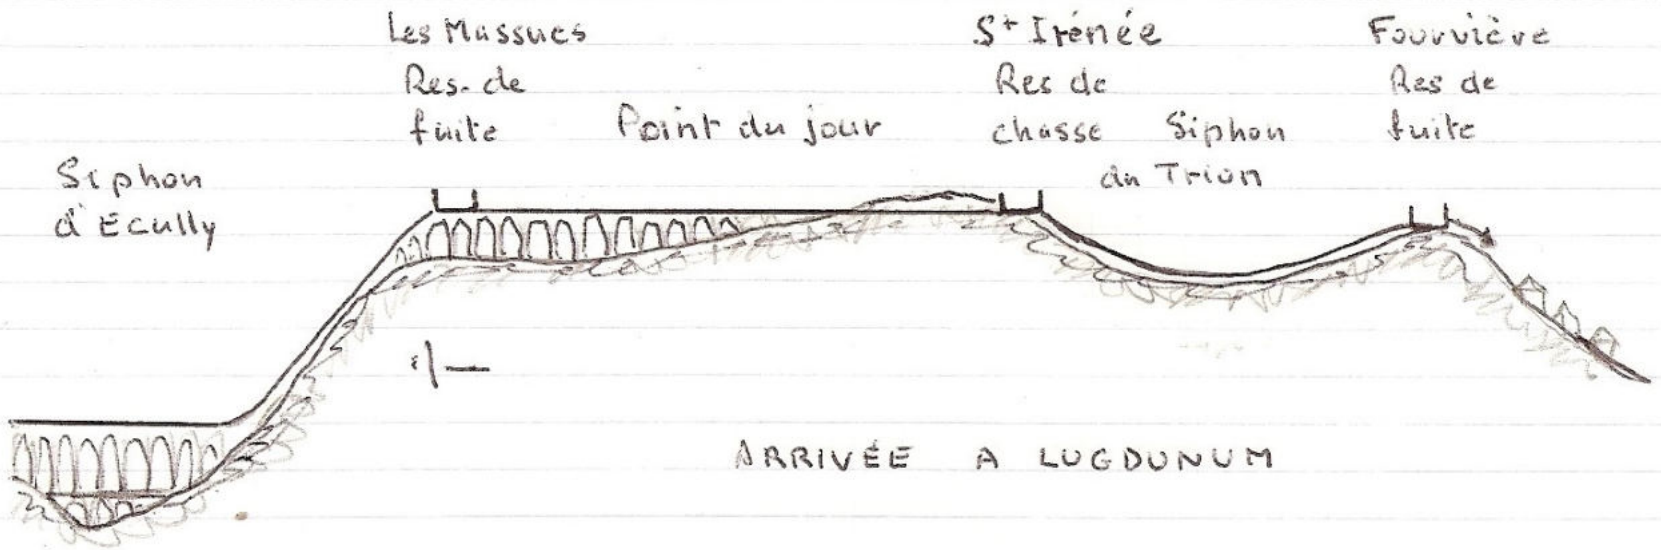 Les Massues
Res. de
fuite
Point du jour
St Irénée
Res de
chasse
Siphon
du Trion
Fourvière
Res de
fuite
Siphon
d'Ecully
ARRIVÉE A LUGDUNUM